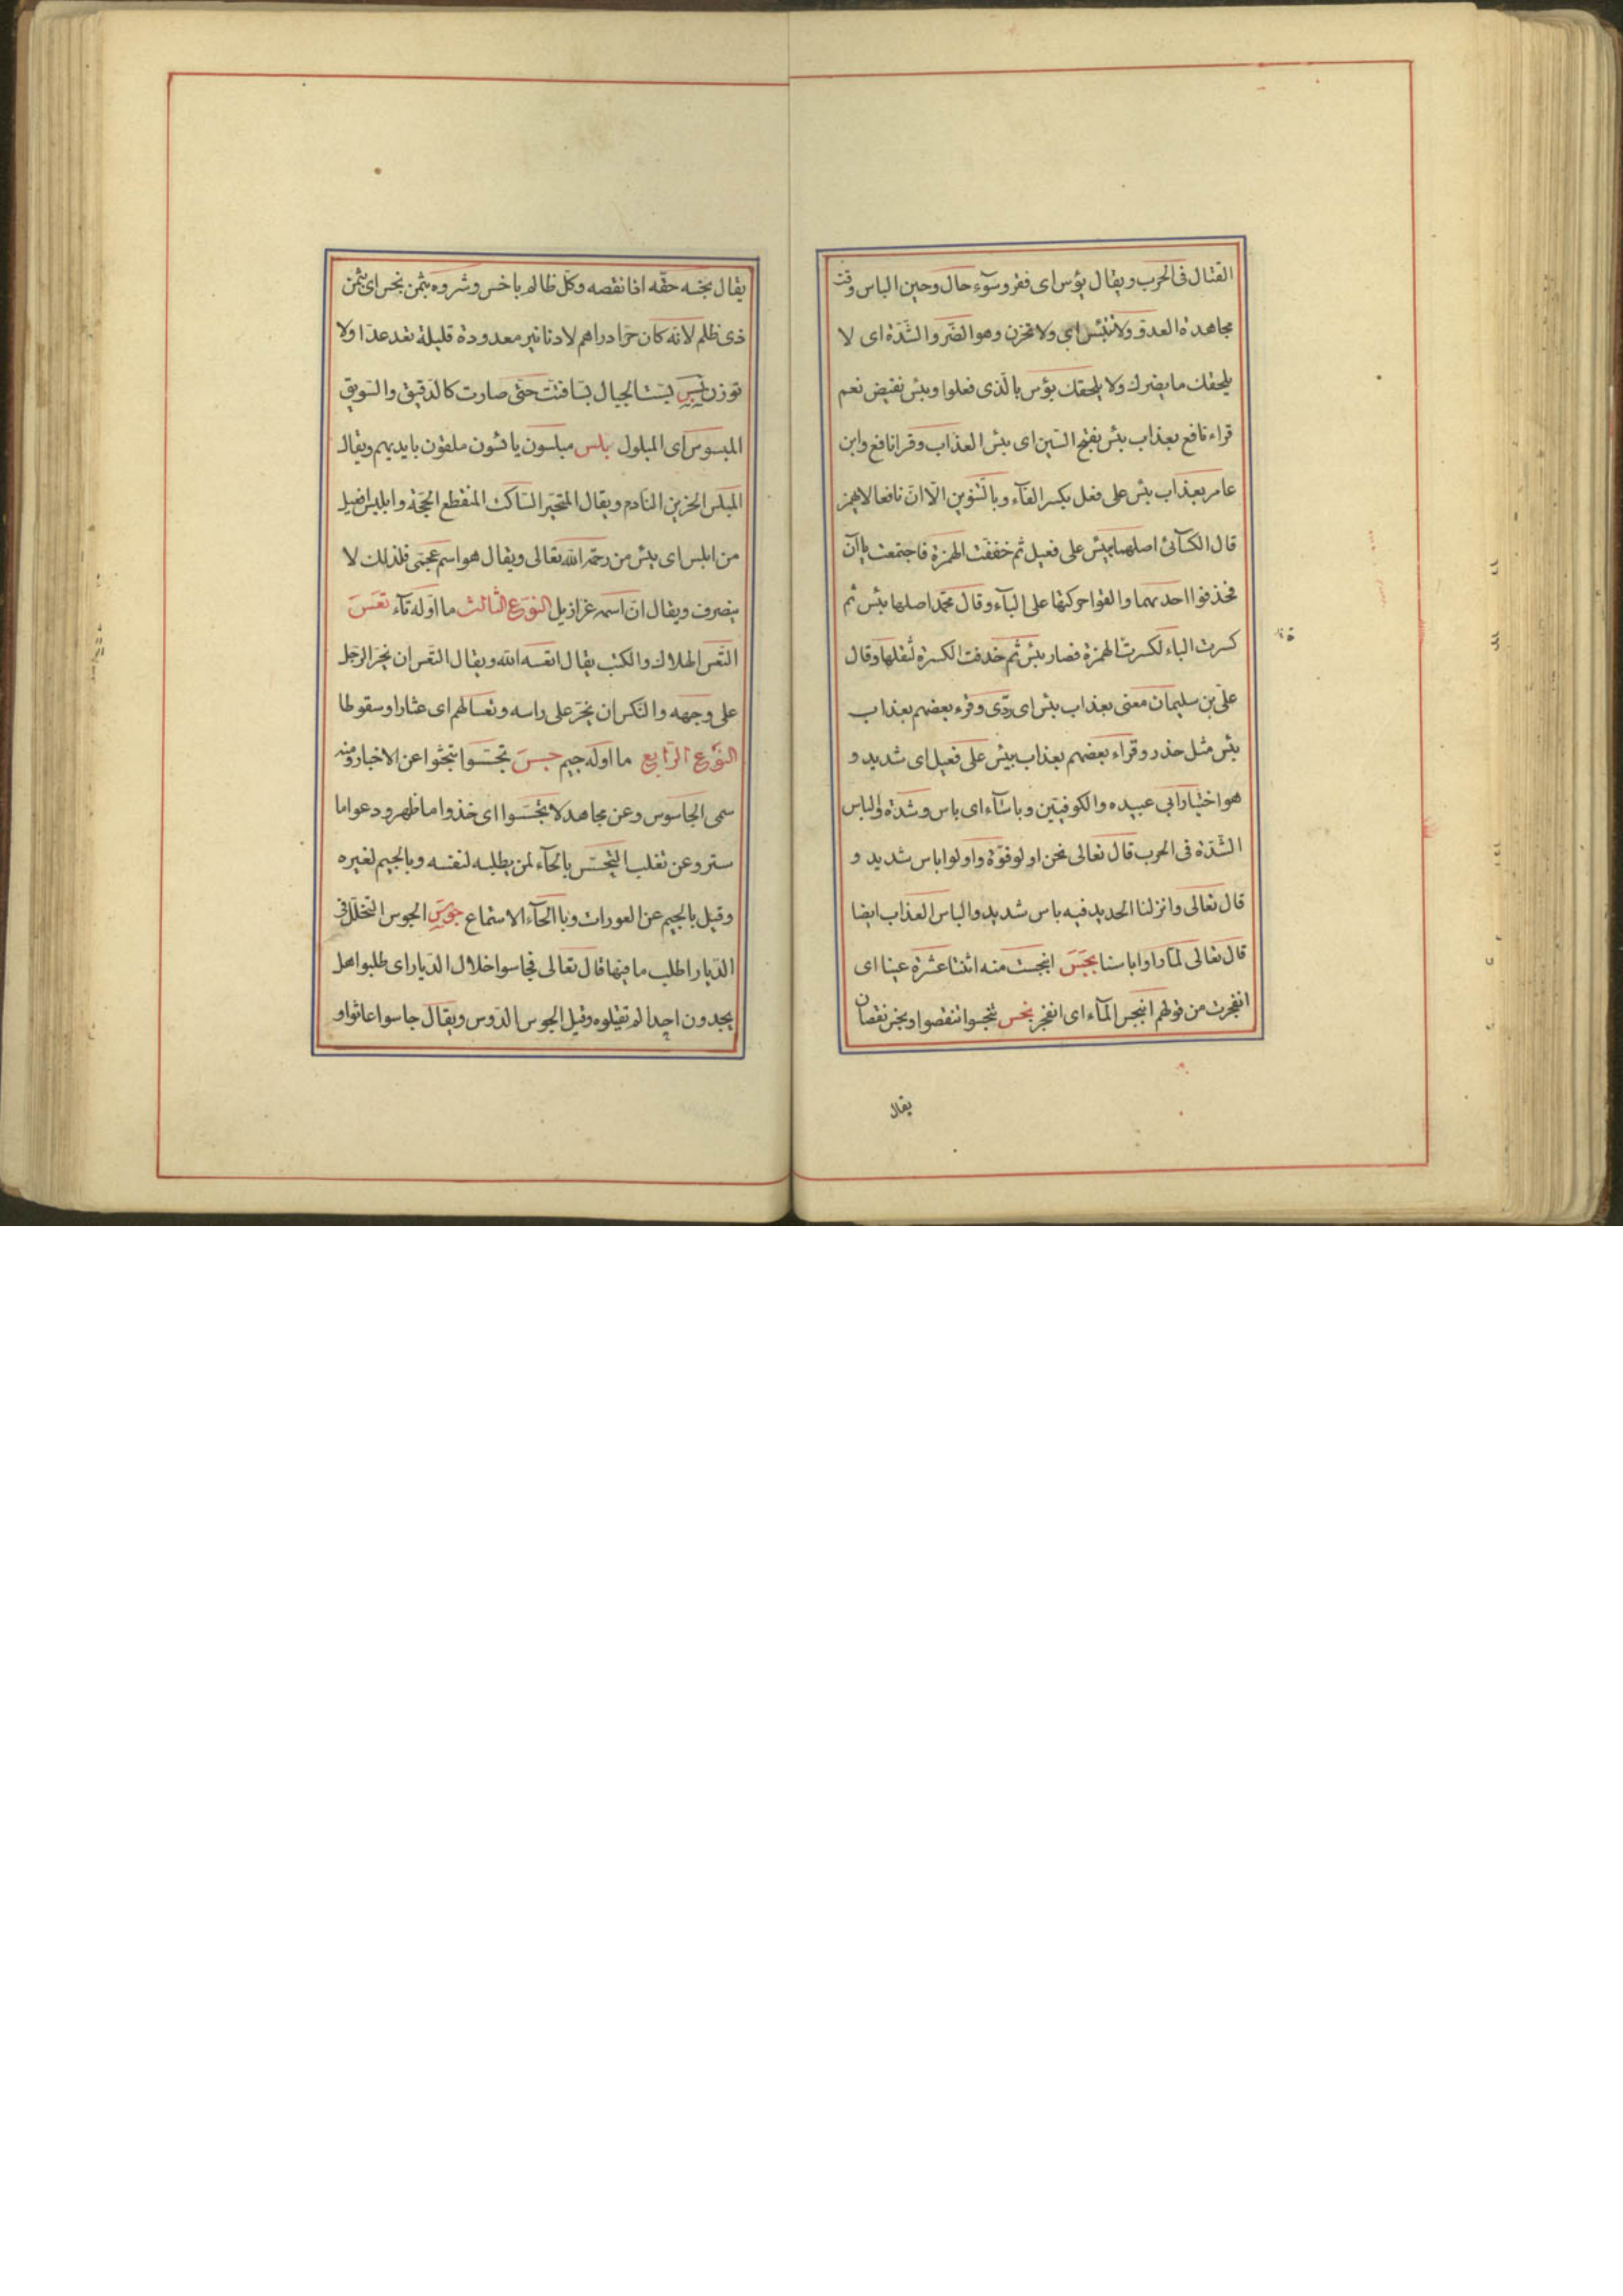 القتال فى الحرب ويقال بؤس اى فقر وسوٓء حال وحين الباس وقت
مجاهدة العدو ولا تبتئس اى ولا تحزن وهو الضر والشدة اى لا
يلحقك ما يضرك ولا يلحقك بؤس بالذى فعلوا وبئس نقيض نعم
قراء نافع بعذاب بئس بفتح السين اى بئس العذاب وقرا نافع وابن
عامر بعذاب بئس على فعل بكسر الفآء وبالتنوين الا ان نافعا لا يهمز
قال الكسآئى اصلها بيئس على فعيل ثم خففت الهمزة فاجتمعت ياآن
فحذفوا احديهما والقوا حركتها على البآء وقال محمد اصلها بئس ثم
كسرت الباء لكسرت الهمزة فصار بئس ثم حذفت الكسرة لثقلها وقال
على بن سليمان معنى بعذاب بئس اى ردى وقرء بعضهم بعذاب
بئس مثل حذر وقراء بعضهم بعذاب بيئس على فعيل اى شديد و
هو اختيار ابى عبيده والكوفيين وباسآء اى باس وشدة والباس
الشدة فى الحرب قال تعالى نحن اولو قوة واولوا باس شديد و
قال تعالى وانزلنا الحديد فيه باس شديد والباس العذاب ايضا
قال تعالى لمآ راوا باسنا بجس انبجست منه اثنتا عشرة عينا اى
انفجرت من قولهم انبجس المآء اى انفجر بخس تبخسوا تنقصوا وبخس نقصان
يقال
يقال بخسه حقه اذا نقصه وكل ظالم باخس وشروه بثمن بخس اى بثمن
ذى ظلم لانه كان حرا دراهم لا دنانير معدودة قليلة تعد عدا ولا
توزن بسس بست الجبال بسا فتت حتى صارت كالدقيق والسويق
المبسوس اى المبلول بلس مبلسون يائسون ملقون بايديهم ويقال
المبلس الحزين النادم ويقال المتحير الساكت المنقطع الحجة وابليس افعيل
من ابلس اى يئس من رحمة الله تعالى ويقال هو اسم عجمى فلذلك لا
ينصرف ويقال ان اسمه عزازيل النوع الثالث ما اوله تآء تعس
التعس الهلاك والكب يقال اتعسه الله ويقال التعس ان يخر الرجل
على وجهه والنكس ان يخر على راسه وتعسا لهم اى عثارا وسقوطا
النوع الرابع ما اوله جيم جسس تجسسوا تبحثوا عن الاخبار ومنه
سمى الجاسوس وعن مجاهد لا تجسسوا اى خذوا ما ظهر ودعوا ما
ستر وعن ثعلب التجسس بالحآء لمن يطلبه لنفسه وبالجيم لغيره
وقيل بالجيم عن العورات وبا الحآء الاستماع جوس الجوس التخلل فى
الديار اطلب ما فيها قال تعالى فجاسوا خلال الديار اى طلبوا هل
يجدون احدا لم تقتلوه وقيل الجوس الدوس ويقال جاسوا عاثوا و